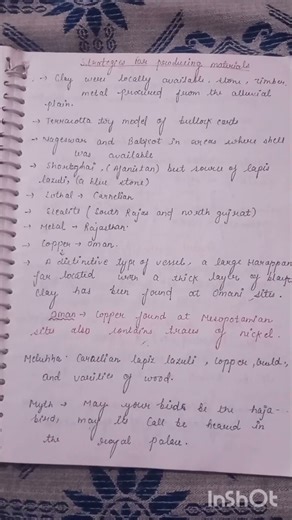 Strategies for producing materials
→ Clay were locally available. stone, timber
metal produced from the alluvial
plain.
→ Terracotta toy model of bullock carts
→ Nageswar and Balakot in areas where shell
was available
→ Shortughai, (Afanistan) best source of lapis
lazuli (a blue stone)
→ Lothal → Carnelian
→ Steatite (South Rajas and north gujrat)
→ Metal → Rajasthan.
→ Copper → Oman.
→ A distinctive type of vessel, a large Harappan
far located with a thick layer of black
clay has been found at Omani sites.
Oman → Copper found at Mesopotamian
sites also contains traces of nickel.
Meluhha- Carnelian lapis lazuli, copper, gold,
and varieties of wood.
Myth → May your bird be the haja-
bird, may its call be heard in
the royal palace.
InShot